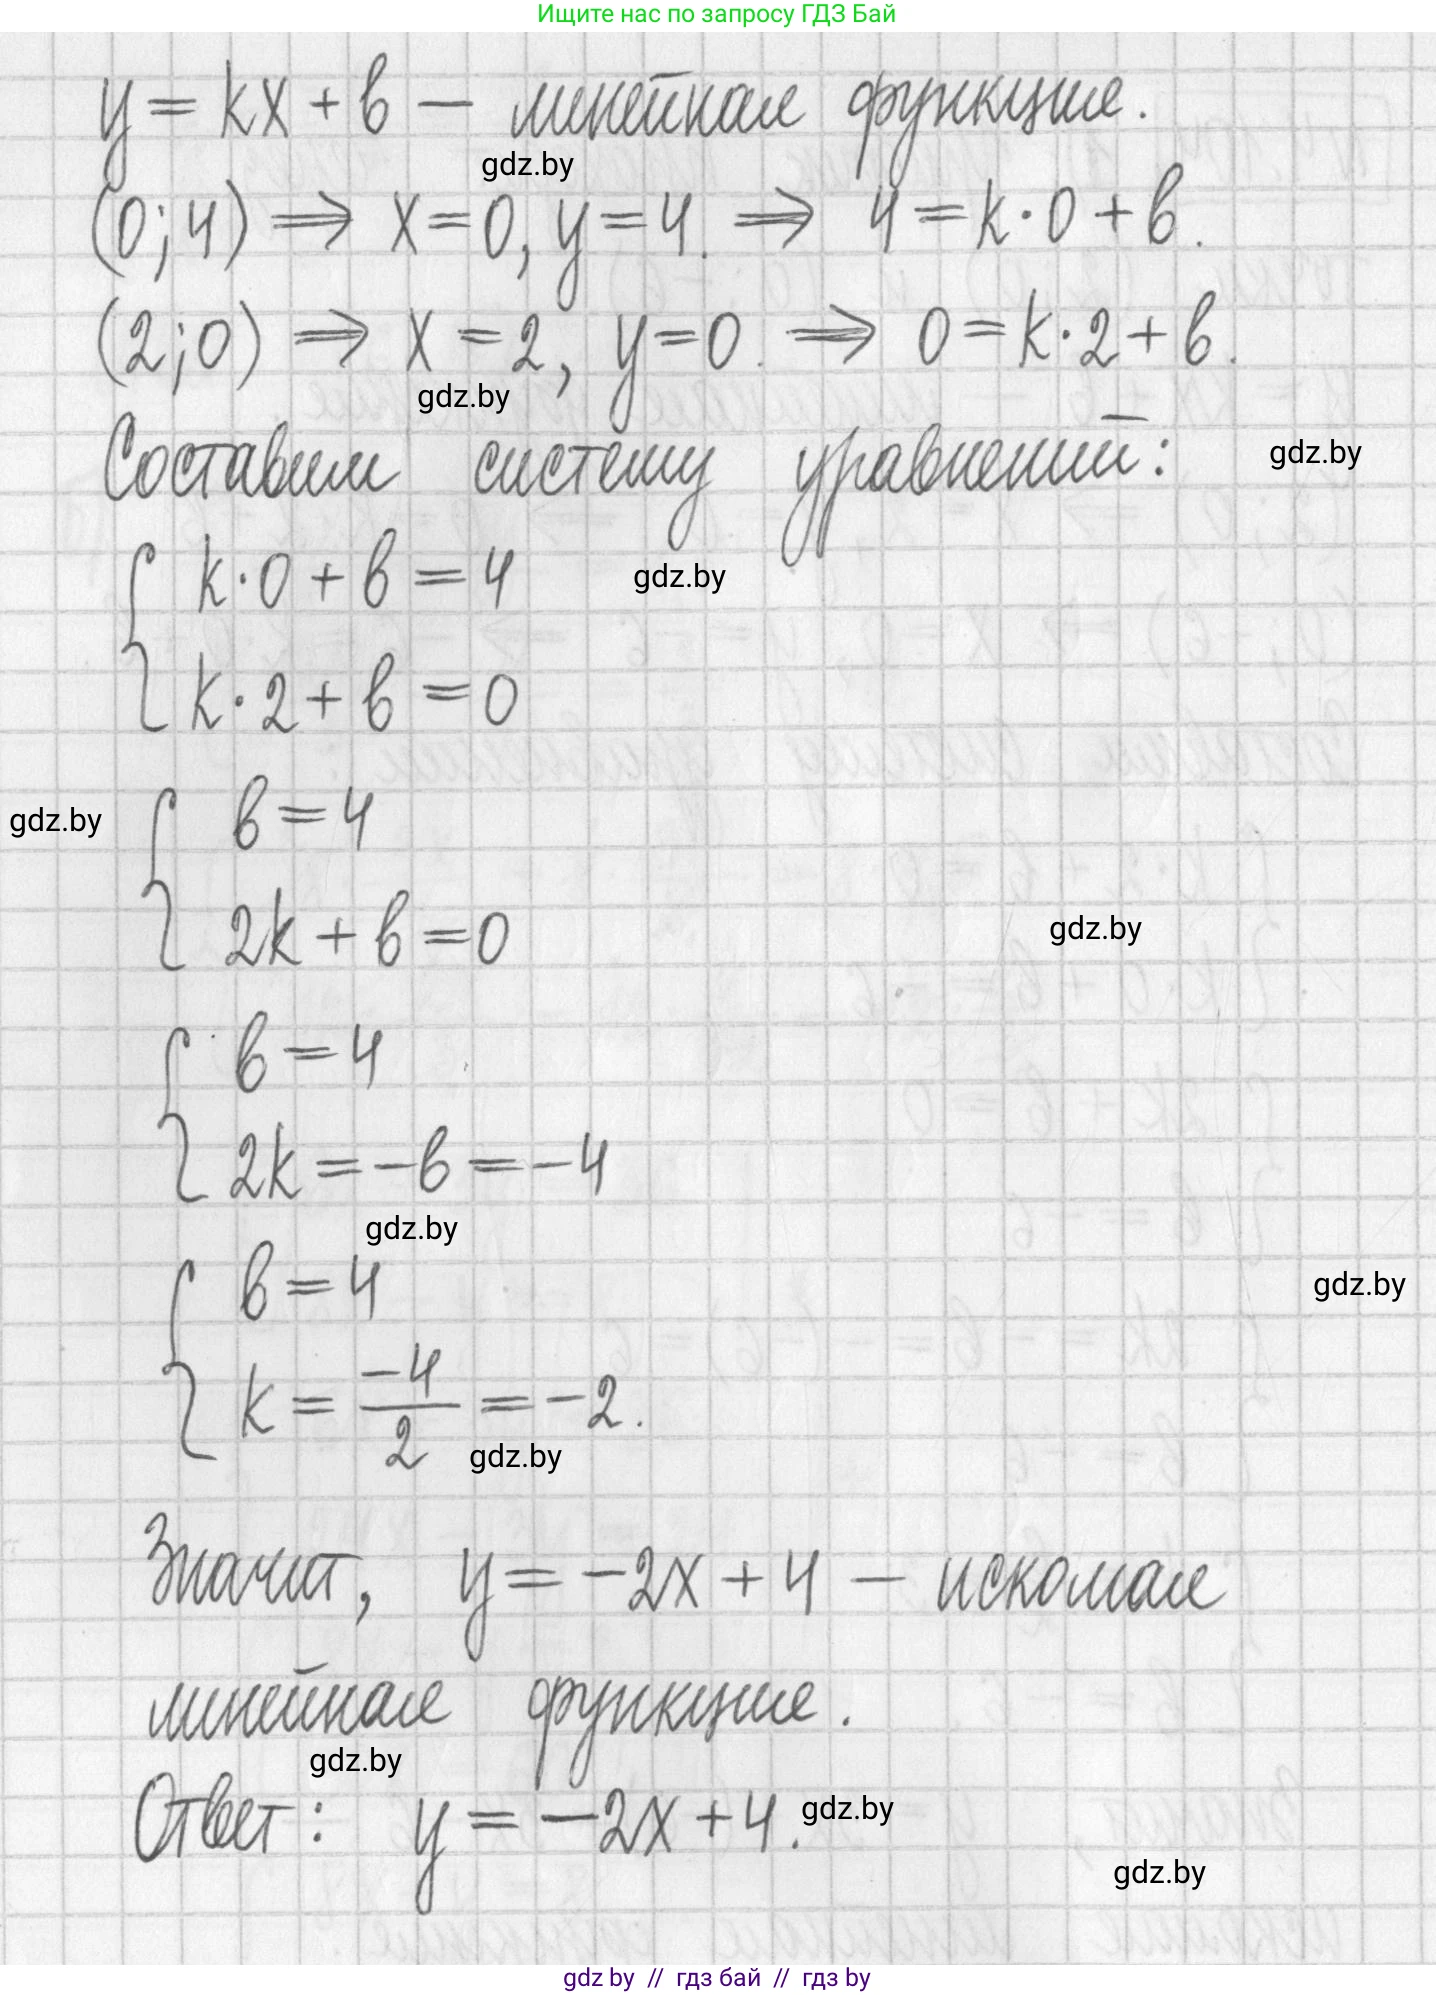 Ищите нас по запросу ГДЗ Бай
y = kx + b — линейная функция.
gdz.by
(0; 4) ⟹ x = 0, y = 4. ⟹ 4 = k · 0 + b.
(2; 0) ⟹ x = 2, y = 0. ⟹ 0 = k · 2 + b.
gdz.by
Составим систему уравнений:
gdz.by
{ k · 0 + b = 4
gdz.by
k · 2 + b = 0
{ b = 4
gdz.by
2k + b = 0
gdz.by
{ b = 4
2k = -b = -4
gdz.by
{ b = 4
gdz.by
k = -4/2 = -2.
gdz.by
Значит, y = -2x + 4 — искомая
линейная функция.
gdz.by
Ответ: y = -2x + 4.
gdz.by
gdz.by
gdz by // гдз бай // гдз by